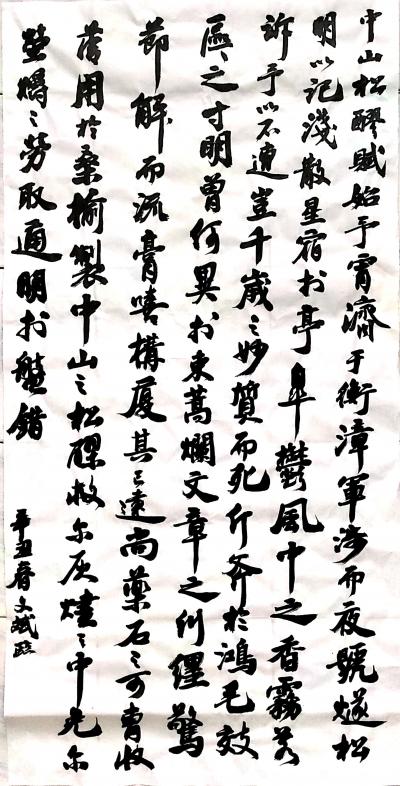 中山松醪賦始予宵濟于衡漳軍涉而夜號燧松
明以記淺散星宿於亭皋鬱風中之香霧若
訴予以不遭豈千歲之妙質而死斤斧於鴻毛效
區〻之寸明曾何異於束蒿爛文章之糾纆驚
節解而流膏嘻構厦其已遠尚藥石之可曹收
薄用於桑榆製中山之松醪救尔灰燼之中免尔
螢爝之勞取通明於盤錯
辛丑春文斌臨